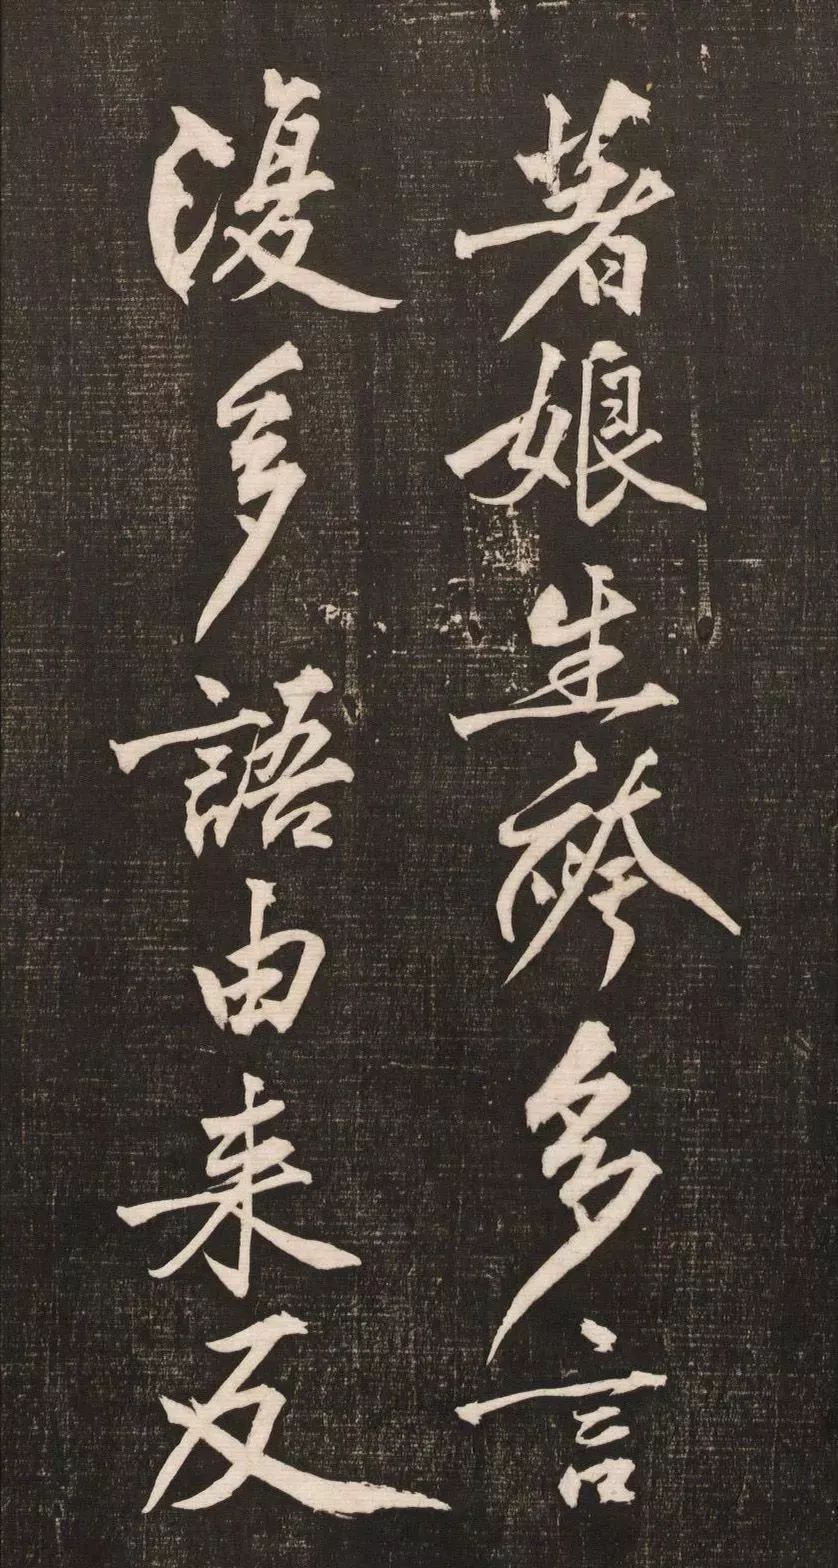 著娘生袴多言
復多語由来反